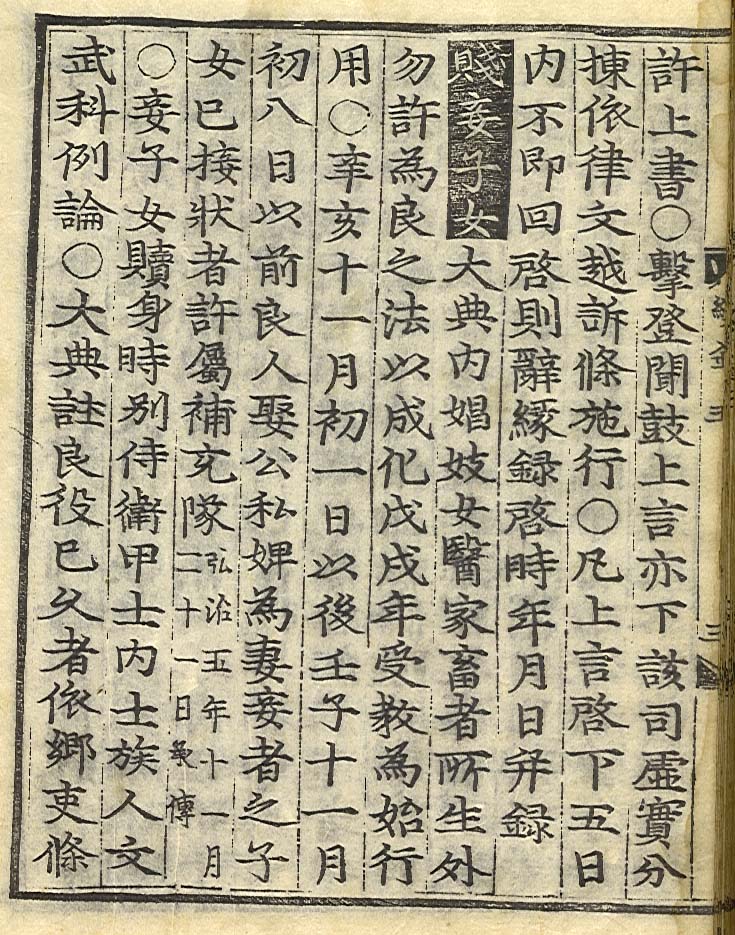 許上書○擊登聞鼓上言亦下該司虛實分
揀依律文越訴條施行○凡上言啓下五日
內不即回啓則辭緣録啓時年月日幷録
賤妾子女大典內娼妓女醫家畜者所生外
勿許為良之法以成化戊戌年受敎為始行
用○辛亥十一月初一日以後壬子十一月
初八日以前良人娶公私婢為妻妾者之子
女已接狀者許屬補充隊弘治五年十一月
二十一日承傳
○妾子女贖身時別侍衛甲士內士族人文
武科例論○大典註良役已久者依鄉吏條
三
三